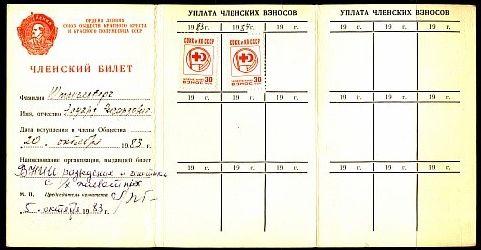 ОРДЕНА ЛЕНИНА
СОЮЗ ОБЩЕСТВ КРАСНОГО КРЕСТА
И КРАСНОГО ПОЛУМЕСЯЦА СССР
ЧЛЕНСКИЙ БИЛЕТ
Фамилия
Имя, отчество Эдуард
Дата вступления в члены Общества
20 октября 1983 г.
Наименование организации, выдавшей билет
ВНИИ разведения и
с/х
М. П. Председатель комитета
5 октября 1983 г.
УПЛАТА ЧЛЕНСКИХ ВЗНОСОВ
1983 г. 1984 г. 19 г.
СОКК и КП СССР СОКК и КП СССР
30 30
ВЗНОС ВЗНОС
19 г. 19 г. 19 г.
19 г. 19 г. 19 г.
УПЛАТА ЧЛЕНСКИХ ВЗНОСОВ
19 г. 19 г. 19 г.
19 г. 19 г. 19 г.
19 г. 19 г. 19 г.